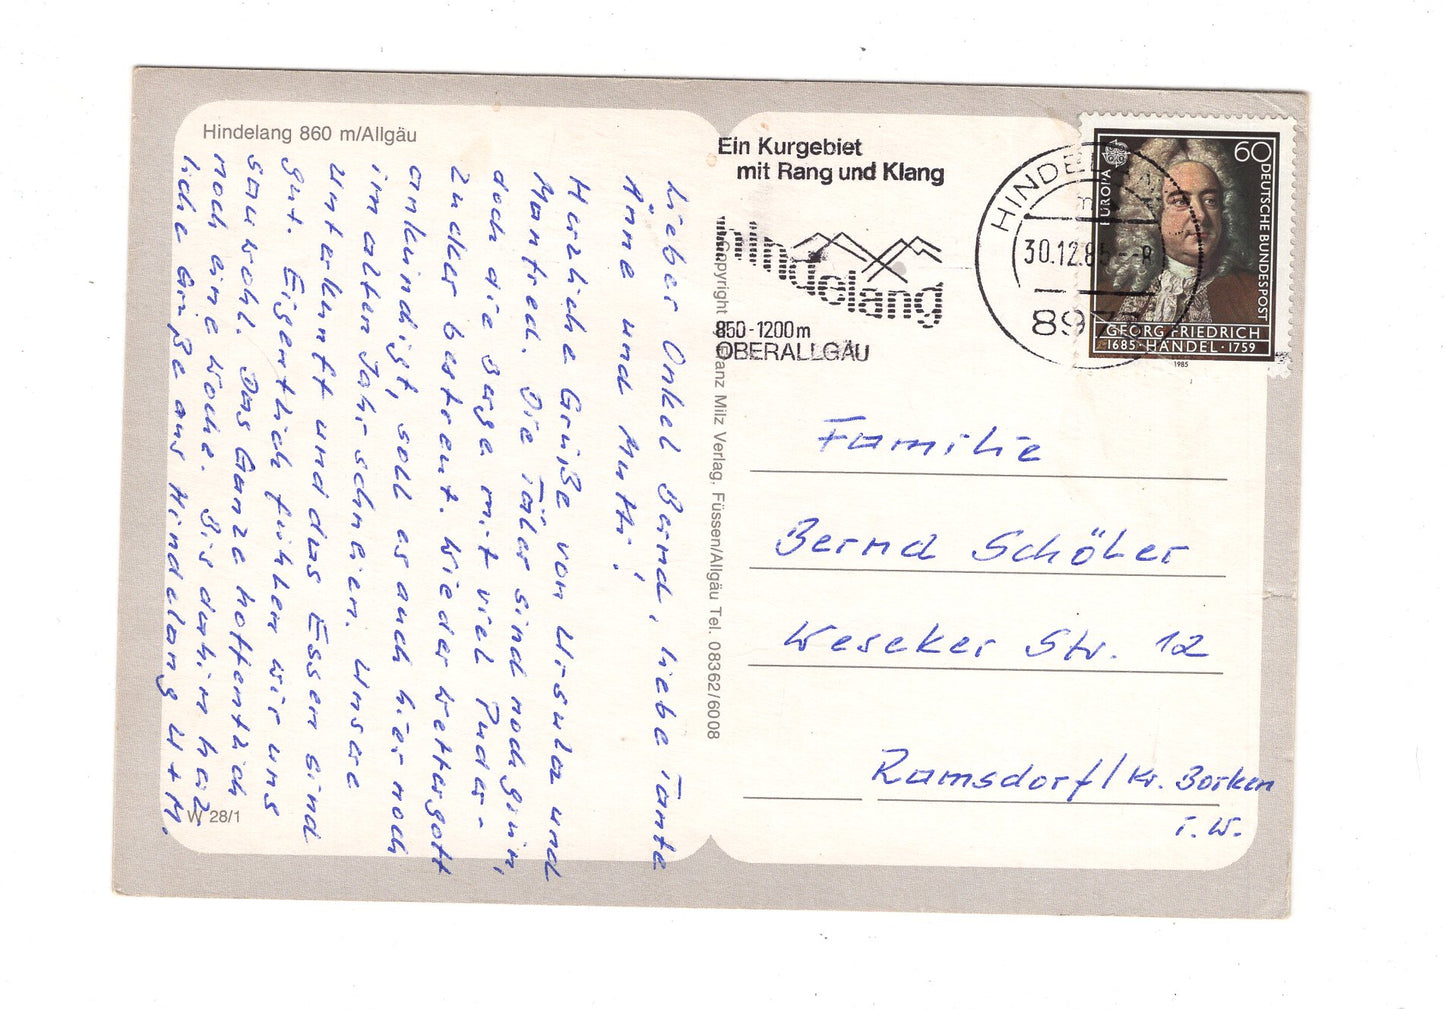 Hindelang 860 m/Allgäu
Lieber Onkel Bernd, liebe Tante
Änne und Mutti!
Herzliche Grüße von Ursula und
Manfred. Die Täler sind noch grün,
doch die Berge mit viel Puder-
zucker bestreut. Wieder Wettergott
ankündigt, soll es auch hier noch
im alten Jahr schneien. Unsere
Unterkunft und das Essen sind
gut. Eigentlich fühlen wir uns
sauwohl. Das Ganze hoffentlich
noch eine Woche. Bis dahin herz-
liche Grüße aus Hindelang U + M.
W 28/1
Copyright Franz Milz Verlag, Füssen/Allgäu Tel. 08362/6008
Ein Kurgebiet
mit Rang und Klang
Hindelang
850-1200m
OBERALLGÄU
HINDELANG
30.12.85
897
60
DEUTSCHE BUNDESPOST
EUROPA
CEPT
GEORG FRIEDRICH
1685·HÄNDEL·1759
1985
Familie
Bernd Schöler
Weseker Str. 12
Ramsdorf/Kr. Borken
i. W.